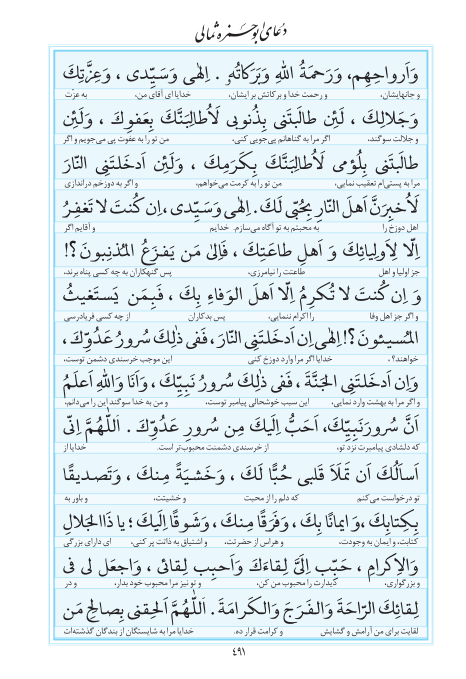 دعای ابوحمزه ثمالی
وَاَرواحِهِم، وَرَحمَةُ اللهِ وَبَرَكاتُهُ . اِلٰهی وَسَیِّدی ، وَعِزَّتِكَ
و جانهایشان، و رحمت خدا و برکاتش بر ایشان، خدایا ای آقای من، به عزّت
وَجَلالِكَ ، لَئِن طالَبتَنی بِذُنوبی لَاُطالِبَنَّكَ بِعَفوِكَ ، وَلَئِن
و جلالت سوگند، اگر مرا به گناهانم پی‌جویی کنی، من تو را به عفوت پی می‌جویم و اگر
طالَبتَنی بِلُؤمی لَاُطالِبَنَّكَ بِكَرَمِكَ ، وَلَئِن اَدخَلتَنِی النّارَ
مرا به پستی‌ام تعقیب نمایی، من تو را به کرمت می‌خواهم، و اگر به دوزخم دراندازی
لَاُخبِرَنَّ اَهلَ النّارِ بِحُبّی لَكَ. اِلٰهی وَسَیِّدی، اِن كُنتَ لا تَغفِرُ
اهل دوزخ را به محبتم به تو آگاه می‌سازم. خدایم و آقایم اگر
اِلّا لِاَولِیائِكَ وَ اَهلِ طاعَتِكَ ، فَاِلیٰ مَن یَفزَعُ المُذنِبونَ؟!
جز اولیا و اهل طاعتت را نیامرزی، پس گنهکاران به چه کسی پناه برند،
وَ اِن كُنتَ لا تُكرِمُ اِلّا اَهلَ الوَفاءِ بِكَ ، فَبِمَن یَستَغیثُ
و اگر جز اهل وفا را اکرام ننمایی، پس بدکاران از چه کسی فریادرسی
المُسیئونَ؟! اِلٰهی اِن اَدخَلتَنِی النّارَ، فَفی ذٰلِكَ سُرورُ عَدُوِّكَ،
خواهند؟، خدایا اگر مرا وارد دوزخ کنی این موجب خرسندی دشمن توست،
وَاِن اَدخَلتَنِی الجَنَّةَ ، فَفی ذٰلِكَ سُرورُ نَبِیِّكَ، وَاَنَا وَاللهِ اَعلَمُ
و اگر مرا به بهشت وارد نمایی، این سبب خوشحالی پیامبر توست، و من به خدا سوگند این را می‌دانم،
اَنَّ سُرورَ نَبِیِّكَ، اَحَبُّ اِلَیكَ مِن سُرورِ عَدُوِّكَ . اَللّٰهُمَّ اِنّی
که دلشادی پیامبرت نزد تو، از خرسندی دشمنت محبوب‌تر است. خدایا از
اَسأَلُكَ اَن تَملَاَ قَلبی حُبًّا لَكَ ، وَخَشیَةً مِنكَ ، وَتَصدیقًا
تو درخواست می‌کنم که دلم را از محبت و خشیتت، و باور به
بِكِتابِكَ، وَایمانًا بِكَ، وَفَرَقًا مِنكَ، وَشَوقًا اِلَیكَ ؛ یا ذَا الجَلالِ
کتابت، و ایمان به وجودت، و هراس از حضرتت، و اشتیاق به ذاتت پر کنی، ای دارای بزرگی
وَالاِكرامِ ، حَبِّب اِلَیَّ لِقاءَكَ وَاَحبِب لِقائی ، وَاجعَل لی فی
و بزرگواری، دیدارت را محبوب من کن، و تو نیز مرا محبوب خود بدار، و در
لِقائِكَ الرّاحَةَ وَالفَرَجَ وَالكَرامَةَ . اَللّٰهُمَّ اَلحِقنی بِصالِحِ مَن
لقایت برای من آرامش و گشایش و کرامت قرار ده. خدایا مرا به شایستگان از بندگان گذشته‌ات
٤٩١